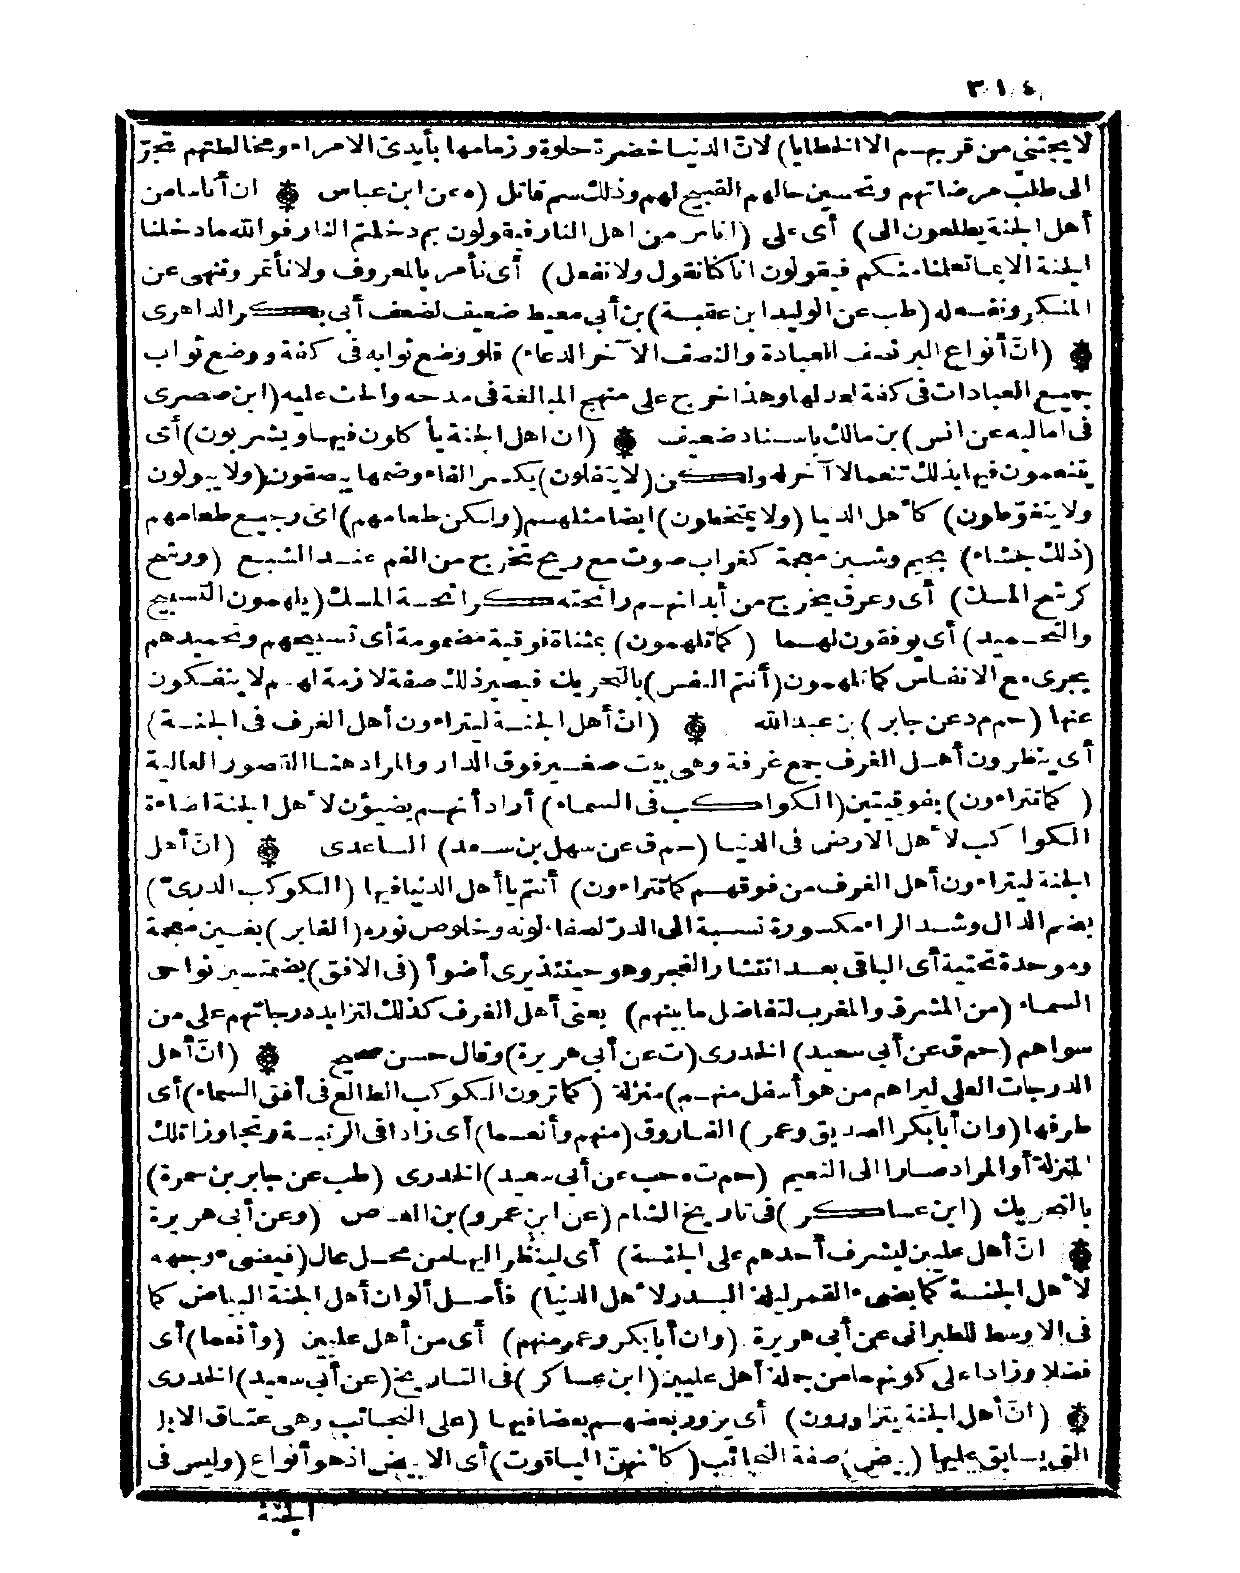 ٣١٤
لا يجتنى من قربهم الا الخطايا) لانّ الدنيا خضرة حلوة وزمامها بأيدى الامراء ومخالطتهم تجرّ
الى طلب مرضاتهم وتحسين حالهم القبيح لهم وذلك سم قاتل (ه عن ابن عباس ۞ ان أناسا من
أهل الجنة يطلعون الى) أى على (اناس من اهل النار فيقولون بم دخلتم النار فوالله ما دخلنا
الجنة الا بما تعلمنا منكم فيقولون انا كنا نقول ولا نفعل) أى نأمر بالمعروف ولا نأتمر وننهى عن
المنكر ونفعله (طب عن الوليد ابن عقبة) بن أبى معيط ضعيف لضعف أبى بكر الداهرى
۞ (انّ أنواع البر نصف العبادة والنصف الآخر الدعاء) فلو وضع ثوابه فى كفة ووضع ثواب
جميع العبادات فى كفة لعدلها وهذا خرج على منهج المبالغة فى مدحه والحث عليه (ابن صصرى
فى اماليه عن انس) بن مالك باسناد ضعيف ۞ (ان اهل الجنة يأكلون فيها ويشربون) أى
يتنعمون فيها بذلك تنعما لا آخر له ولكن (لا يتفلون) بكسر الفاء وضمها يبصقون (ولا يبولون
ولا يتغوّطون) كأهل الدنيا (ولا يمتخطون) ايضا مثلهم (ولكن طعامهم) اى رجيع طعامهم
(ذلك جشاء) بجيم وشين معجمة كغراب صوت مع ريح تخرج من الفم عند الشبع (ورشح
كرشح المسك) أى وعرق يخرج من أبدانهم رائحته كرائحة المسك (يلهمون التسبيح
والتحميد) أى يوفقون لهما (كما تلهمون) بمثناة فوقية مضمومة أى تسبيحهم وتحميدهم
يجرى مع الانفاس كما تلهمون (أنتم النفس) بالتحريك فيصير ذلك صفة لازمة لهم لا ينفكون
عنها (حم م د عن جابر) بن عبد الله ۞ (انّ أهل الجنة ليتراءون أهل الغرف فى الجنة)
أى ينظرون أهل الغرف جمع غرفة وهى بيت صغير فوق الدار والمراد هنا القصور العالية
(كما تتراءون) بفوقيتين (الكواكب فى السماء) أراد أنهم يضيؤن لأهل الجنة اضاءة
الكواكب لأهل الارض فى الدنيا (حم ق عن سهل بن سعد) الساعدى ۞ (انّ أهل
الجنة ليتراءون أهل الغرف من فوقهم كما تتراءون) أنتم يا أهل الدنيا فيها (الكوكب الدرىّ)
بضم الدال وشد الراء مكسورة نسبة الى الدرّ لصفاء لونه وخلوص نوره (الغابر) بغين معجمة
وموحدة تحتية أى الباقى بعد انتشار الفجر وهو حينئذ يرى أضوأ (فى الافق) بضمتين نواحى
السماء (من المشرق والمغرب لتفاضل ما بينهم) يعنى أهل الغرف كذلك لتزايد درجاتهم على من
سواهم (حم ق عن أبى سعيد) الخدرى (ت عن أبى هريرة) وقال حسن صحيح ۞ (انّ أهل
الدرجات العلى ليراهم من هو أسفل منهم) منزلة (كما ترون الكوكب الطالع فى أفق السماء) أى
طرفها (وان أبا بكر الصديق وعمر) الفاروق (منهم وأنعما) أى زادا فى الرتبة وتجاوزا تلك
المنزلة أو المراد صارا الى النعيم (حم ت ه حب عن أبى سعيد) الخدرى (طب عن جابر بن سمرة)
بالتحريك (ابن عساكر) فى تاريخ الشام (عن ابن عمرو) بن العاص (وعن أبى هريرة
۞ انّ أهل عليين ليشرف أحدهم على الجنة) أى لينظر اليها من محل عال (فيضىء وجهه
لأهل الجنة كما يضىء القمر ليلة البدر لأهل الدنيا) فأصل ألوان أهل الجنة البياض كما
فى الاوسط للطبرانى عن أبى هريرة (وان أبا بكر وعمر منهم) أى من أهل عليين (وأنعما) أى
فضلا وزادا على كونهما من جملة أهل عليين (ابن عساكر) فى التاريخ (عن أبى سعيد) الخدرى
۞ (انّ أهل الجنة يتزاورون) أى يزور بعضهم بعضا فيها (على النجائب وهى عتاق الابل
التى يسابق عليها (بيض) صفة النجائب (كأنهنّ الياقوت) أى الابيض اذ هو أنواع (وليس فى
الجنة